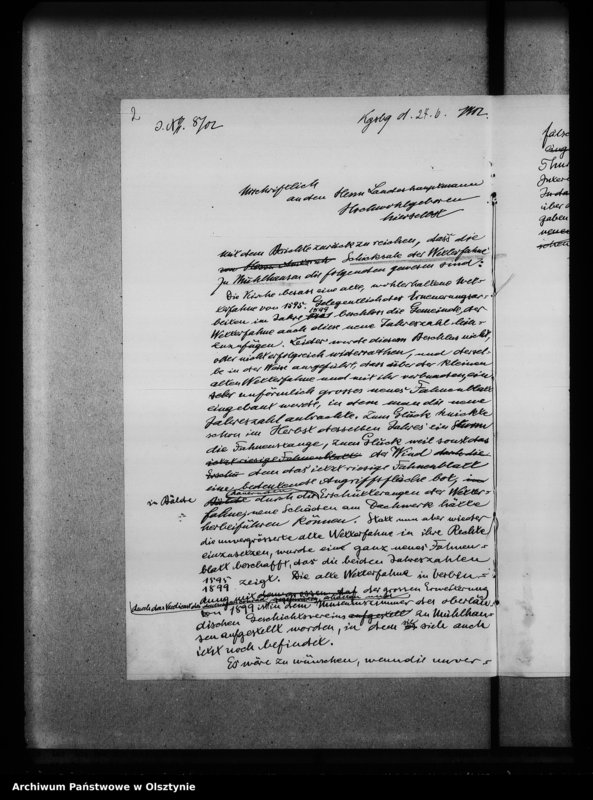 2
J. N. 8/02
Kgsbg d. 24. 6. 1902.
Urschriftlich
an den Herrn Landeshauptmann
Hochwohlgeboren
hierselbst
mit dem Berichte zurückzureichen, dass die
von Herrn Schicksale der Wetterfahne
zu Mühlhausen die folgenden gewesen sind:
Die Kirche besass eine alte, wohlerhaltene Wet-
terfahne von 1595. Gelegentlich der Erneuerungsar-
beiten im Jahre 1899 beschloss die Gemeinde, der
Wetterfahne auch diese neue Jahreszahl hin-
zuzufügen. Leider wurde diesem Beschluss nicht,
oder nicht erfolgreich widerrathen, und dersel-
be in der Weise ausgeführt, dass über der kleinen
alten Wetterfahne und mit ihr verbunden ein
sehr unförmlich grosses neues Fahnenblatt
eingebaut wurde, in dem man die neue
Jahreszahl anbrachte. Zum Glück knickte
schon im Herbst desselben Jahres ein Sturm
die Fahnenstange, zum Glück weil sonst das
jetzt riesige Fahnenblatt der Wind durch die
dem das jetzt riesige Fahnenblatt
eine bedeutende Angriffsfläche bot,
in Bälde
durch die Erschütterungen der Wetter-
fahne neue Schäden am Dachwerk hätte
herbeiführen können. Statt nun aber wieder
die unvergrösserte alte Wetterfahne in ihre Rechte
einzusetzen, wurde ein ganz neues Fahnen-
blatt beschafft, das die beiden Jahreszahlen
1595
1899 zeigt. Die alte Wetterfahne in Verbin-
dung mit der grossen Erweiterung
durch das Verdienst des
von 1899 ist in dem Museumszimmer des oberlän-
dischen Geschichtsvereins aufgestellt in Mühlhau-
sen aufgestellt worden, in dem sie sich auch
jetzt noch befindet.
Es wäre zu wünschen, wenn die unver-